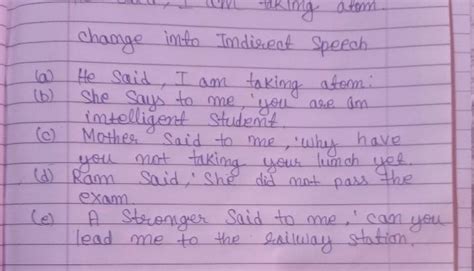 said, I am taking atom.
change into Indirect Speech
(a) He said, I am taking atom:
(b) She says to me, 'you are an
intelligent student.
(c) Mother said to me, 'why have
you not taking your lunch yet.
(d) Ram said, 'She did not pass the
exam.
(e) A Stronger said to me, 'can you
lead me to the railway station.